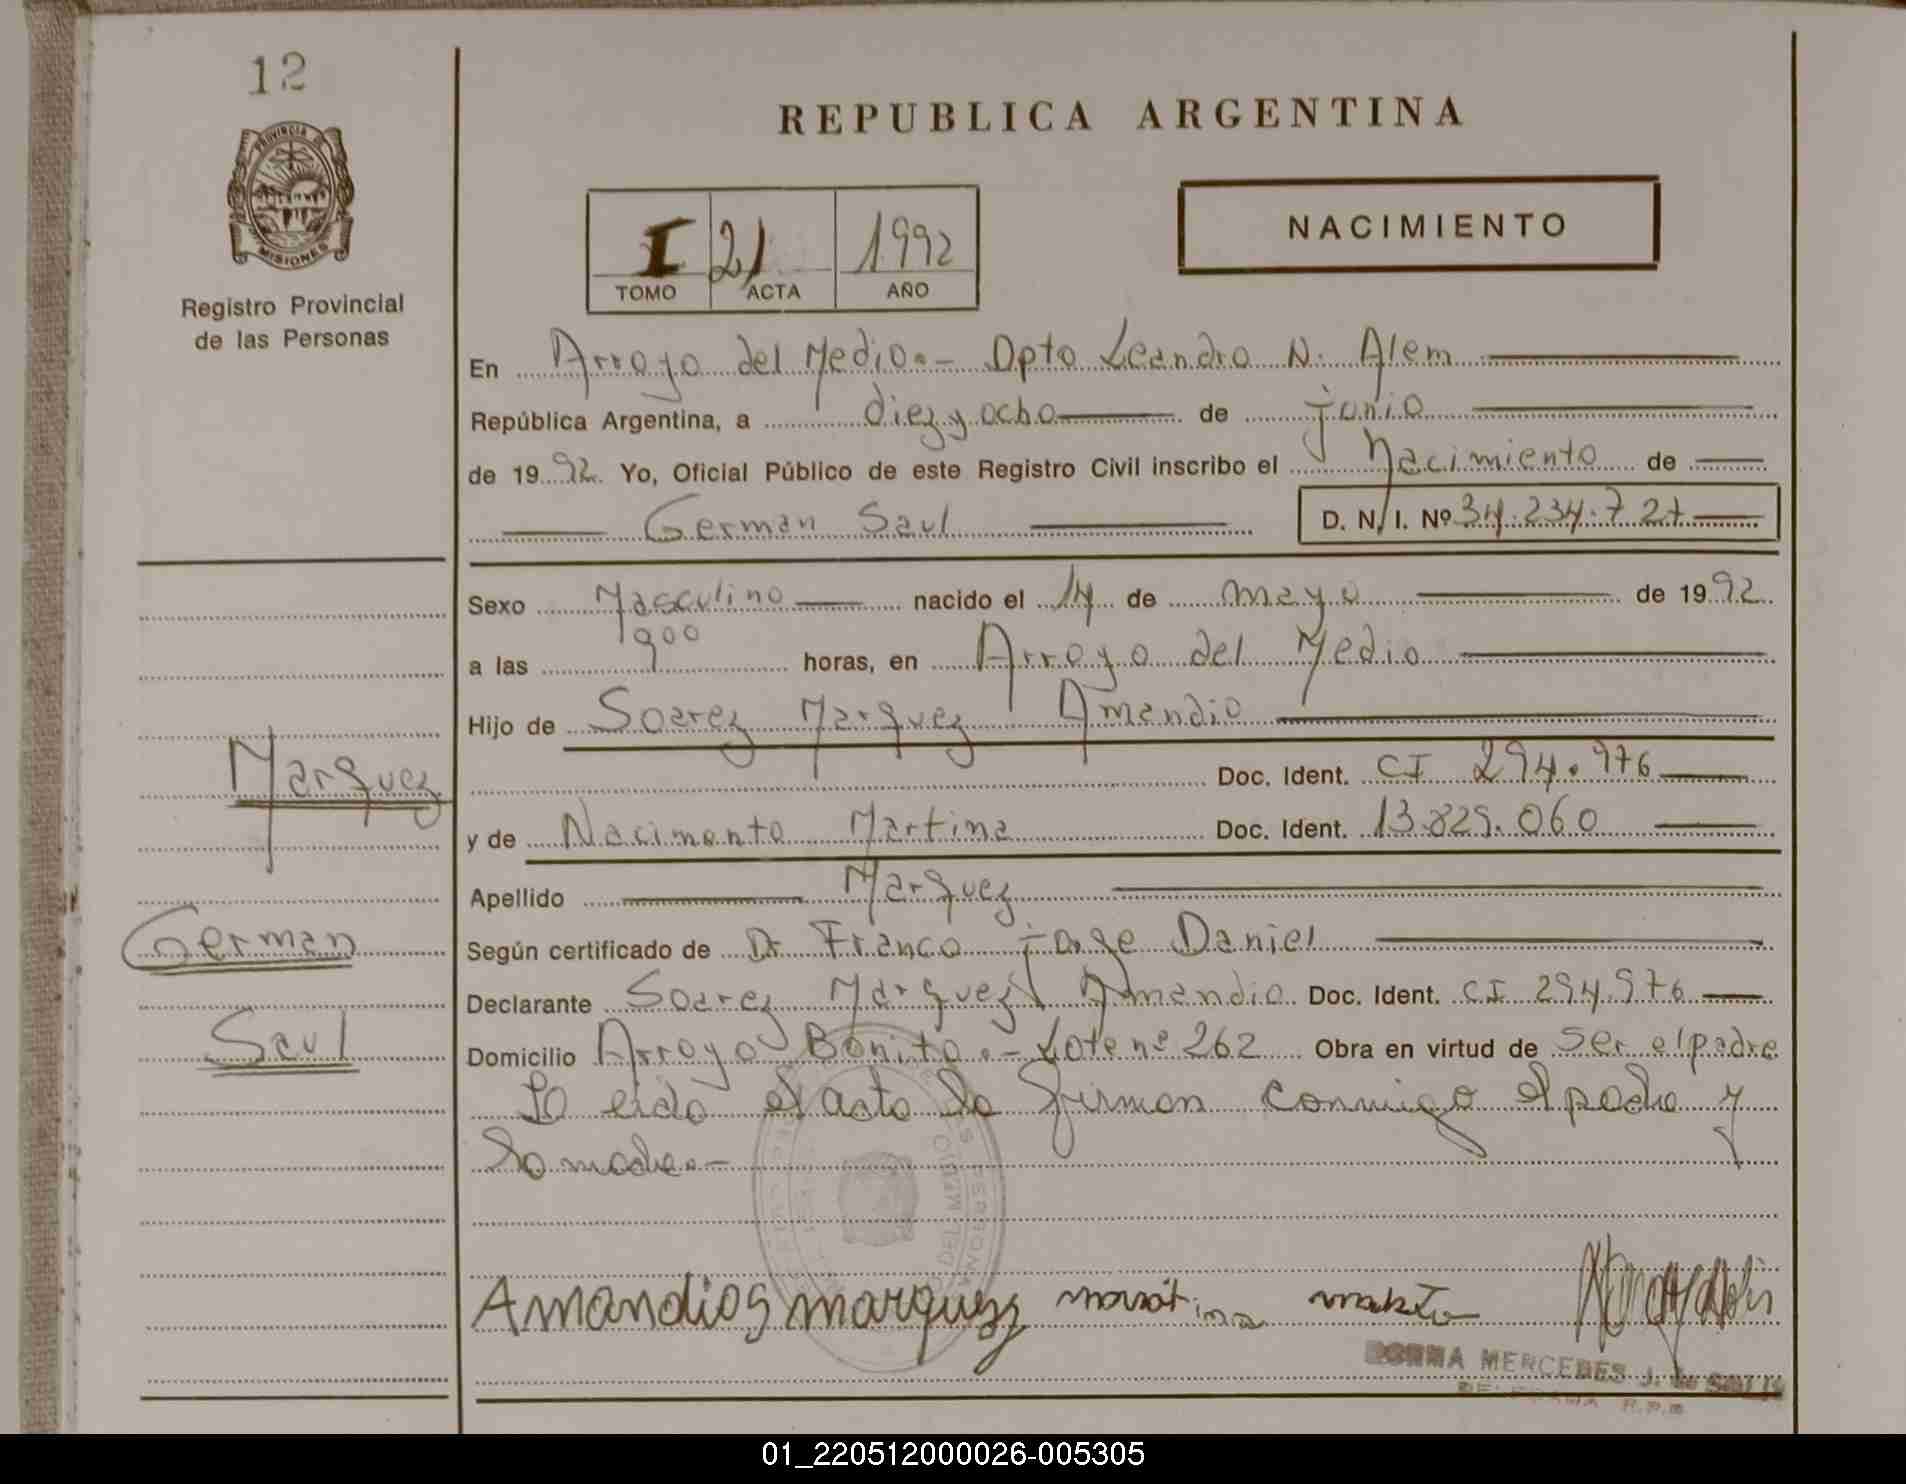 12
PROVINCIA
MISIONES
Registro Provincial
de las Personas
REPUBLICA ARGENTINA
NACIMIENTO
I 21 1992
TOMO ACTA AÑO
En Arroyo del Medio.- Dpto Leandro N. Alem
República Argentina, a diez y ocho de junio
de 1992 Yo, Oficial Público de este Registro Civil inscribo el Nacimiento de
German Saul D. N. I. Nº 34.234.727
Sexo Masculino nacido el 14 de mayo de 1992
a las 900 horas, en Arroyo del Medio
Hijo de Soarez Marquez Amandio
Doc. Ident. CI 294.976
y de Nacimento Martina Doc. Ident. 13.829.060
Apellido Marquez
Según certificado de Dr Franco Jorge Daniel
Declarante Soarez Marquez Amandio Doc. Ident. CI 294.976
Domicilio Arroyo Bonito.- Lote nº 262 Obra en virtud de ser el padre
Leido el acta la firman conmigo el padre y
la madre.-
Marquez
German
Saul
Amandios marquez
DEL MEDIO
MERCEDES J. de
01_220512000026-005305